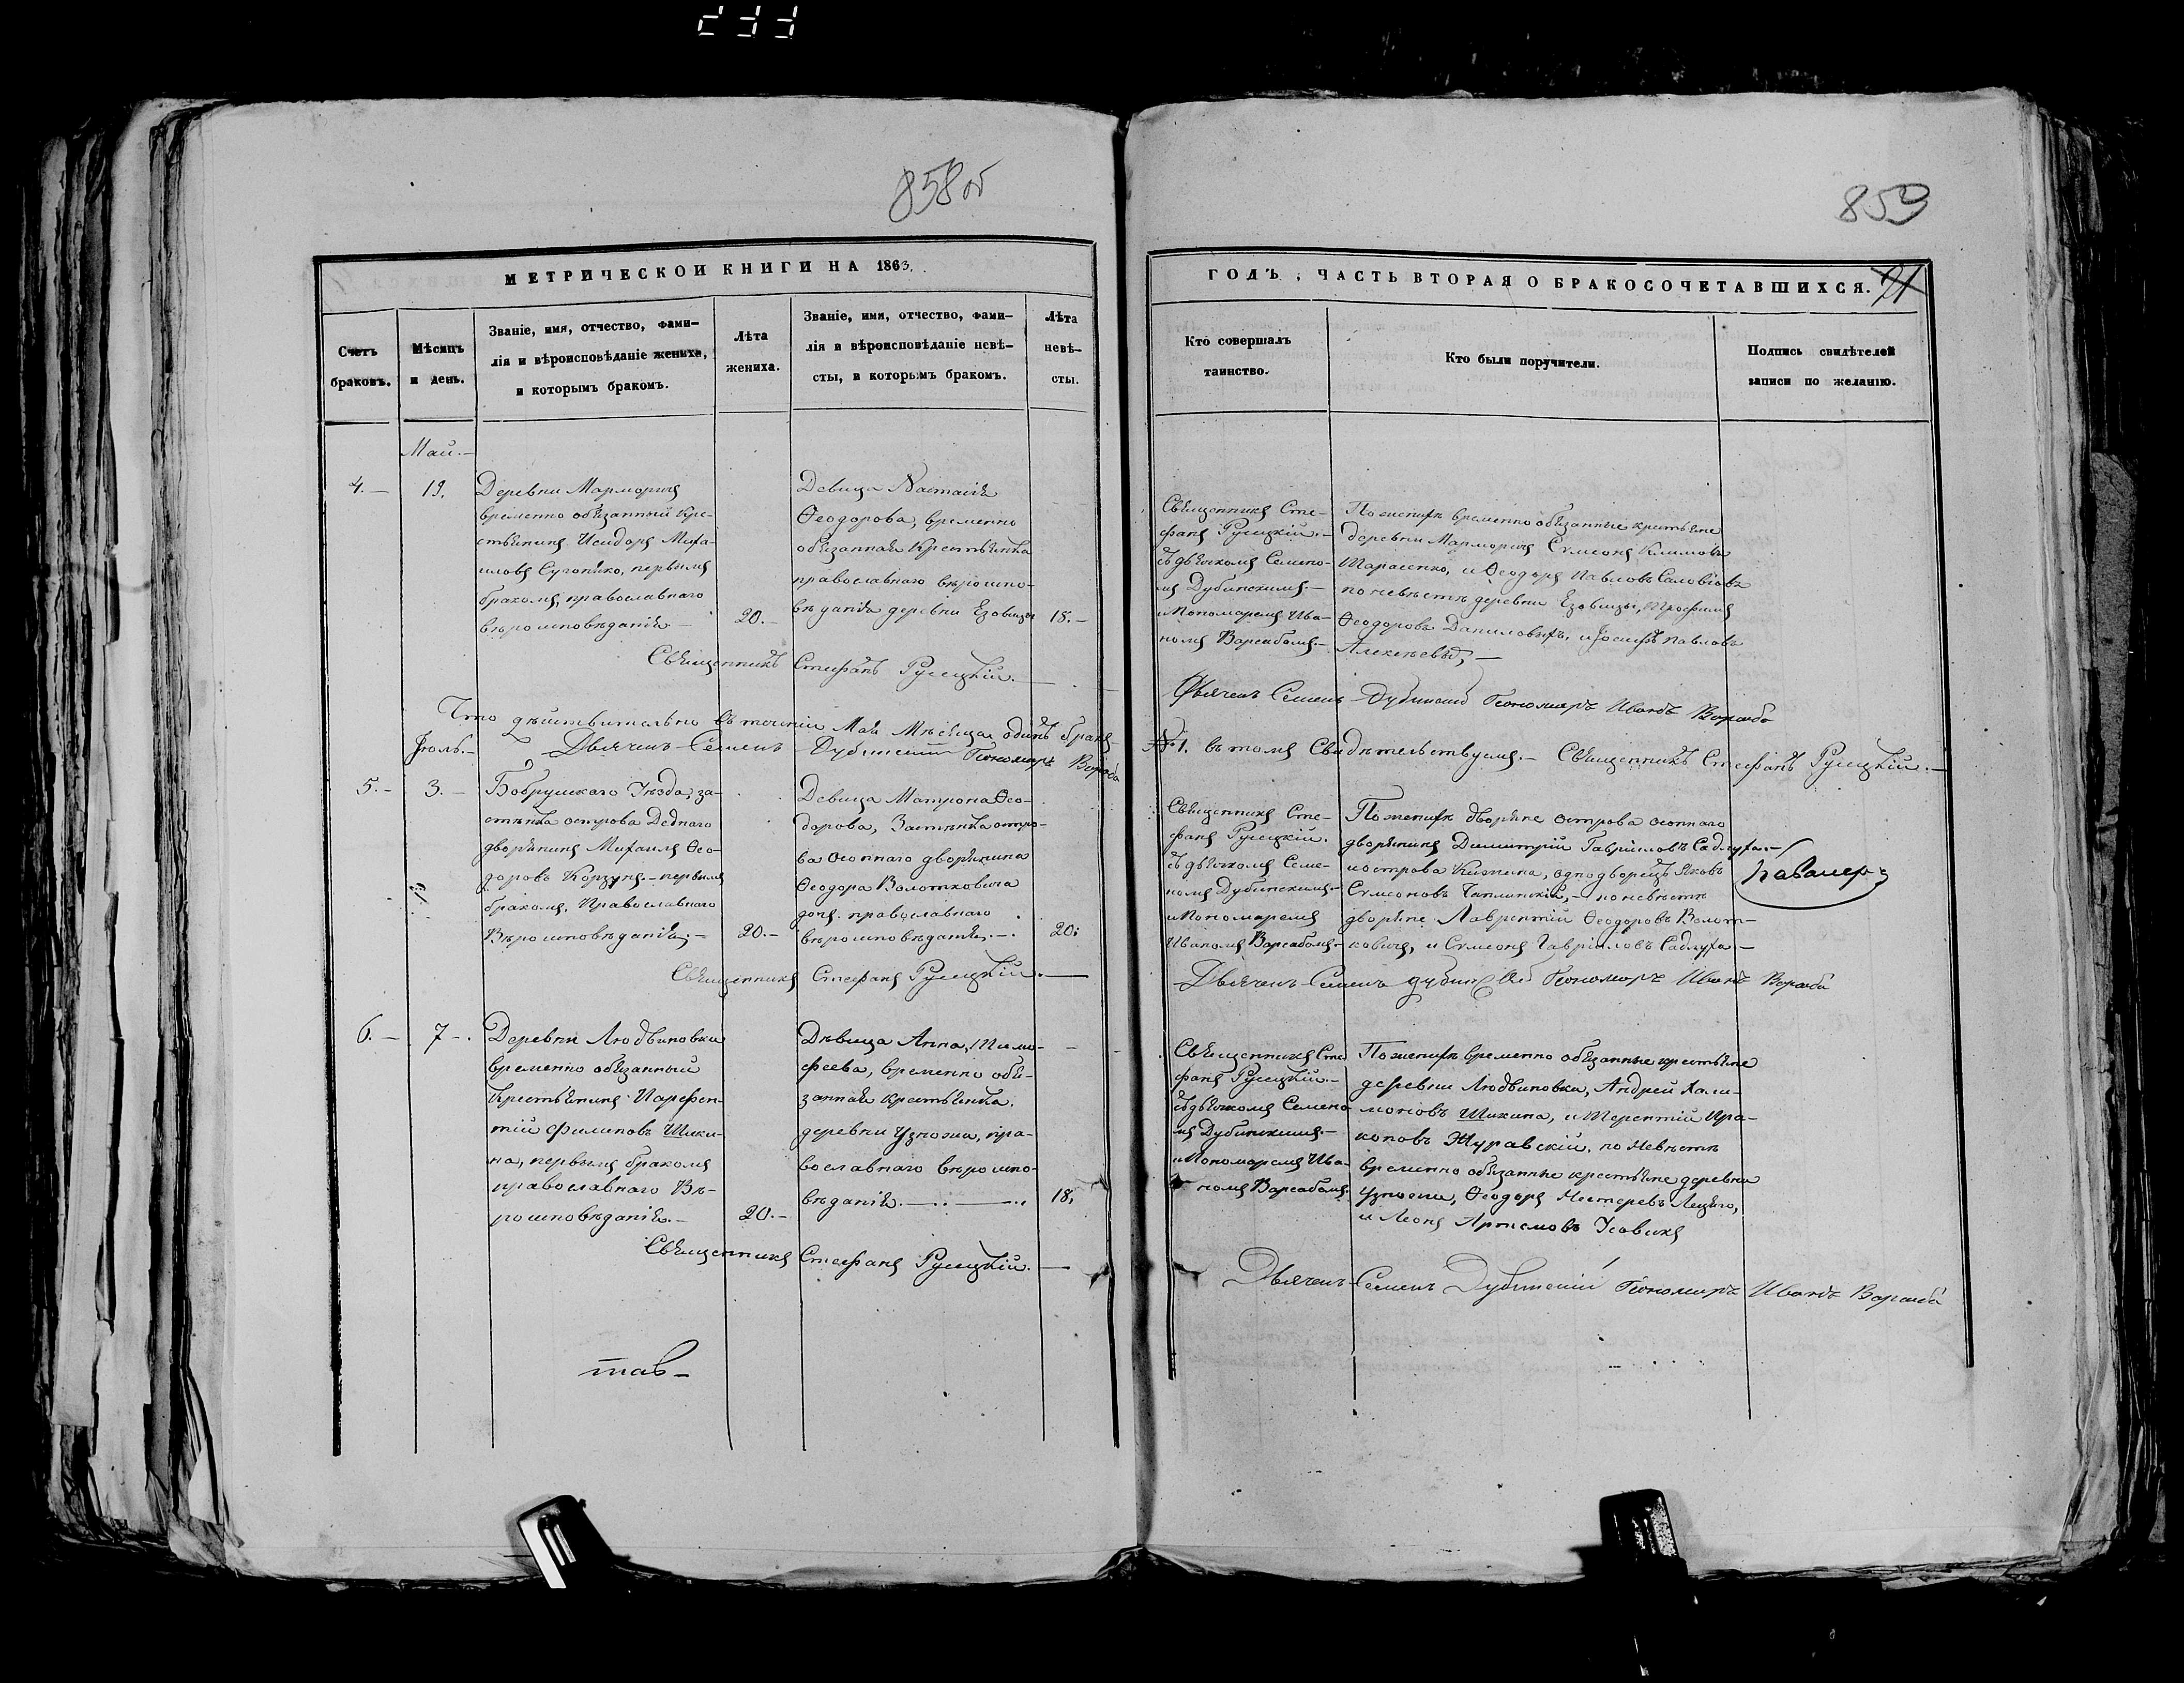 233
858 об
МЕТРИЧЕСКОЙ КНИГИ НА 1863.
Счетъ браковъ.
Мѣсяцъ и день.
Званіе, имя, отчество, фами-
лія и вѣроисповѣданіе жениха,
и которымъ бракомъ.
Лѣта
жениха.
Званіе, имя, отчество, фами-
лія и вѣроисповѣданіе невѣ-
сты, и которымъ бракомъ.
Лѣта
невѣ-
сты.
Май.-
4.- 19.
Деревни Марморичъ
временно обязанный Кре-
стьянинъ Исидоръ Миха-
иловъ первымъ
бракомъ, православнаго
вѣроисповѣданія.-
20.-
Девица Настасія
Ѳеодорова, временно
обязанная Крестьянка
православнаго вѣроиспо-
вѣданія деревни Езовицы
18.-
Священникъ Стефанъ Русецкій.
Что дѣйствительно въ теченіи Мая Мѣсяца одинъ бракъ
Іюль.- Дьячекъ Семенъ Дубинскій Пономарь Вараба
5.- 3.-
Бобруйскаго Уѣзда, за-
стѣнка острова Деднаго
дворянинъ Михаилъ Ѳео-
доровъ Корзунъ - первымъ
бракомъ, Православнаго
Вѣроисповѣданія.-
20.-
Девица Матрона Ѳео-
дорова, Застѣнка остро-
ва Осотнаго дворянина
Ѳеодора Волотковича
дочь православнаго
вѣроисповѣданія.-
20.
Священникъ Стефанъ Русецкій.
6.- 7.-
Деревни Людвиновки
временно обязанный
Крестьянинъ Парфен-
тій Филиповъ Шики-
на, первымъ бракомъ
православнаго Вѣ-
роисповѣданія.-
20.-
Дѣвица Анна, Тимо-
феева, временно обя-
занная крестьянка
деревни Узножа, пра-
вославнаго вѣроиспо-
вѣданія.
18.
Священникъ Стефанъ Русецкій.
тав-
859
ГОДЪ, ЧАСТЬ ВТОРАЯ О БРАКОСОЧЕТАВШИХСЯ.
71
Кто совершалъ
таинство.
Кто были поручители.
Подпись свидѣтелей
записи по желанію.
Священникъ Сте-
фанъ Русецкій.-
съ дьячкомъ Семено-
мъ Дубинскимъ.-
и Пономаремъ Ива-
номъ Варабомъ.-
По женихѣ временно обязанные крестьяне
деревни Марморичъ Сѵмеонъ Климовъ
Тарасенко, и Ѳеодоръ Павловъ Саловіовъ
по невѣстѣ деревни Езовицы, Трофимъ
Ѳеодоровъ Даниловичъ, и Іосифъ Павловъ
Алексѣевъ.-
Дьячекъ Семенъ Дубинскій Пономарь Иванъ Вараба
№1. въ томъ Свидѣтельствуемъ.- Священникъ Стефанъ Русецкій.
Священникъ Сте-
фанъ Русецкій.
съ дьячкомъ Семе-
номъ Дубинскимъ-
и Пономаремъ
Иваномъ Варабомъ.-
По женихѣ дворяне острова осотнаго
дворянинъ Димитрій Гавріиловъ Садлуха.-
и острова однодворецъ Яковъ
Сѵмеоновъ - по невѣстѣ
дворяне Лаврентій Ѳеодоровъ Волот-
ковичъ, и Сѵмеонъ Гавріиловъ Садлуха-
Дьячекъ Семенъ Дубинскій Пономарь Иванъ Вараба
Священникъ Сте-
фанъ Русецкій.-
съ дьячкомъ Семено-
мъ Дубинскимъ-
и Пономаремъ Ива-
номъ Варабомъ.
По женихѣ временно обязанные крестьяне
деревни Людвиновка, Андрей Хали-
моновъ Шикина, и Терентій Пра-
коповъ Журавскій, по Невѣстѣ
временно обязанные крестьяне деревни
Узножа, Ѳеодоръ Нестеревъ Лецко,
и Леонъ Артемовъ Усовикъ
Дьячекъ Семенъ Дубинскій Пономарь Иванъ Вараба